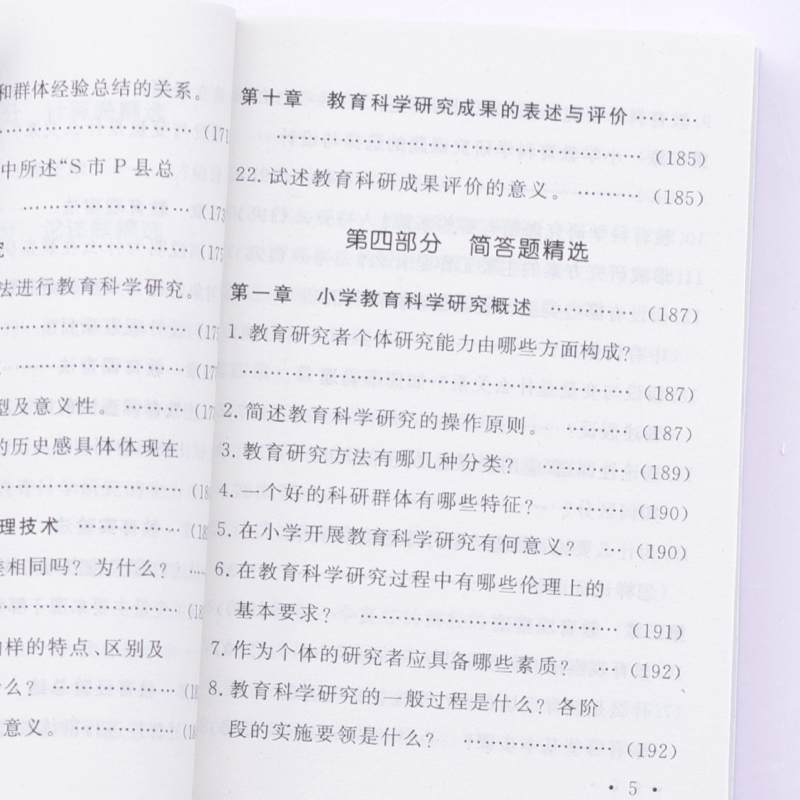 和群体经验总结的关系。
……………………(171
中所述“S市P县总
……………………(173
究
……………………(17
法进行教育科学研究。
……………………(17
……………………(17
型及意义性。……(17
的历史感具体体现在
……………………(18
理技术……………(18
差相同吗？为什么？…
……………………(18
抽样的特点、区别及
什么？……………(18
意义。……………(18
第十章 教育科学研究成果的表述与评价……
……………………………………(185)
22.试述教育科研成果评价的意义。……(185)
第四部分 简答题精选
第一章 小学教育科学研究概述…………(187)
1.教育研究者个体研究能力由哪些方面构成？
……………………………………(187)
2.简述教育科学研究的操作原则。……(187)
3.教育研究方法有哪几种分类？………(189)
4.一个好的科研群体有哪些特征？……(190)
5.在小学开展教育科学研究有何意义？…(190)
6.在教育科学研究过程中有哪些伦理上的
基本要求？……………………………(191)
7.作为个体的研究者应具备哪些素质？…(192)
8.教育科学研究的一般过程是什么？各阶
段的实施要领是什么？………………(192)
· 5 ·